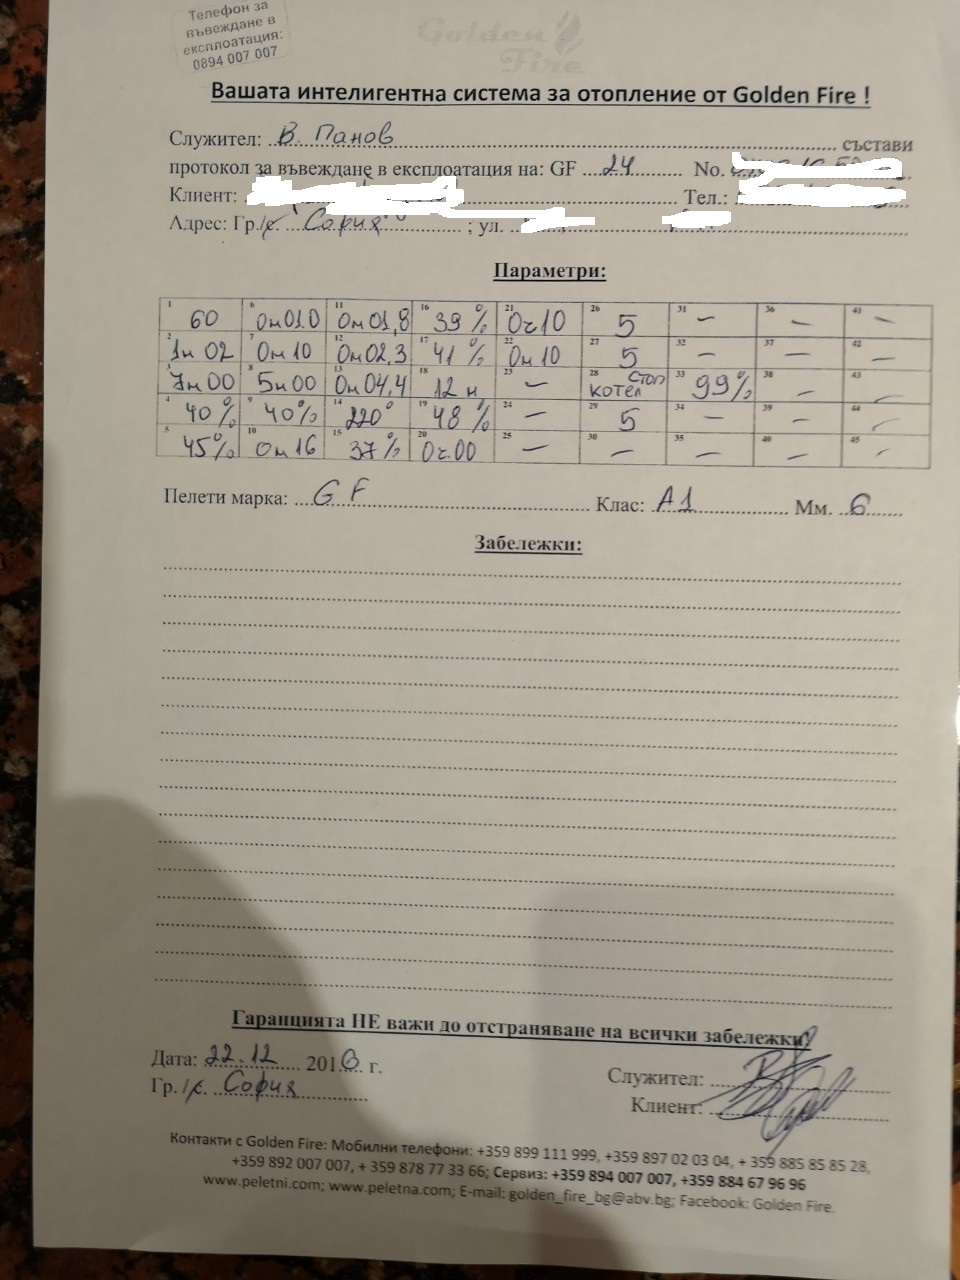 Телефон за
въвеждане в
експлоатация:
0894 007 007
Golden
Fire
Вашата интелигентна система за отопление от Golden Fire !
Служител: В. Панов състави
протокол за въвеждане в експлоатация на: GF 24 No.
Клиент: Тел.:
Адрес: Гр./с. София ; ул.
Параметри:
1 60 6 0м01.0 11 0м01,8 16 39 % 21 0ч10 26 5 31 — 36 — 41 —
2 1м 02 7 0м 10 12 0м02,3 17 41 % 22 0м 10 27 5 32 — 37 — 42 —
3 7м00 8 5м00 13 0м04,4 18 12 м 23 — 28 СТОП КОТЕЛ 33 99% 38 — 43 —
4 40% 9 40% 14 220° 19 48 % 24 — 29 5 34 — 39 — 44 —
5 45% 10 0м16 15 37 % 20 0ч.00 25 — 30 — 35 — 40 — 45 —
Пелети марка: GF Клас: А1 Мм. 6
Забележки:
Гаранцията НЕ важи до отстраняване на всички забележки!
Дата: 22.12 2018 г. Служител:
Гр./с. София Клиент:
Контакти с Golden Fire: Мобилни телефони: +359 899 111 999, +359 897 02 03 04, + 359 885 85 85 28,
+359 892 007 007, + 359 878 77 33 66; Сервиз: +359 894 007 007, +359 884 67 96 96
www.peletni.com; www.peletna.com; E-mail: golden_fire_bg@abv.bg; Facebook: Golden Fire.